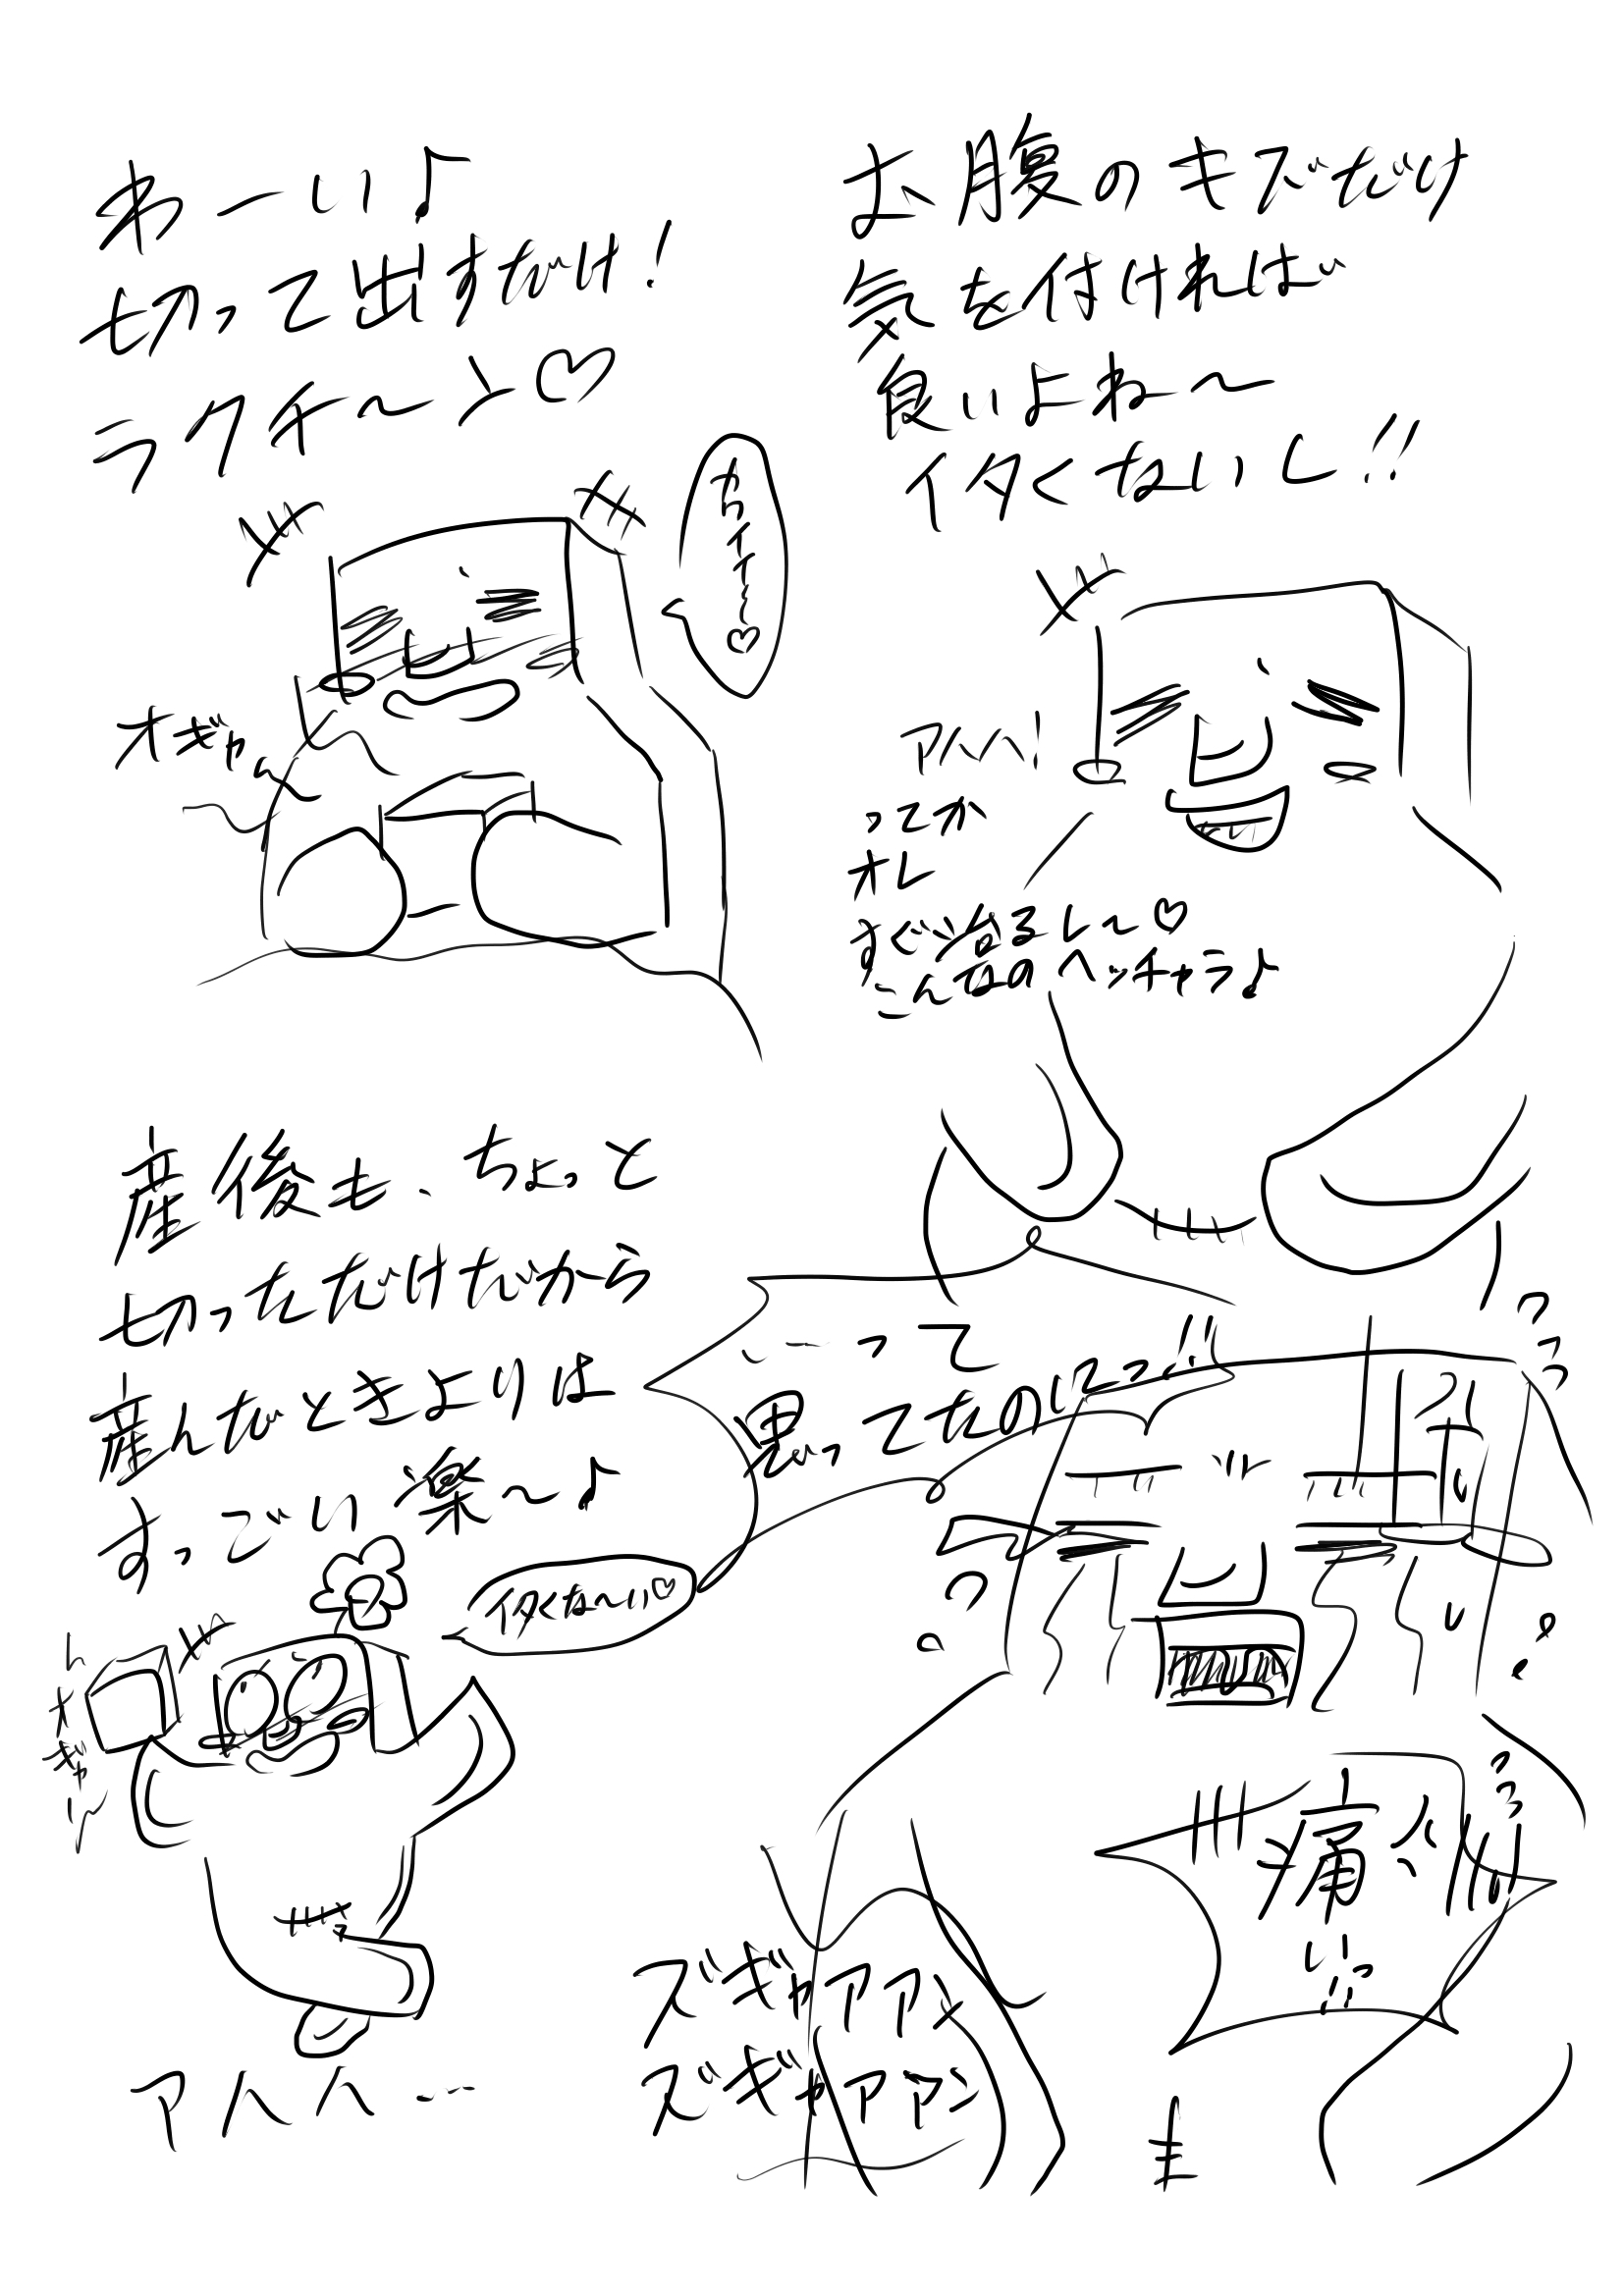 お腹のキズだけ
気を付ければ
良いよね〜
イタくないし!!
アハハ!
ってか
オレ
すぐ治るし〜♡
こんなのヘッチャラ♪
わーい♪
切って出すだけ!
ラクチ〜ン♡
カワイイ〜♡
オギャー
産後も、ちょっと
切っただけだから
産んだときよりは
すっごい楽〜♪
イタくな〜い♡
オギャー
アハハ…
…って
思ってたのにっ!!
痛い
ズギャアアン
ズギャアアン